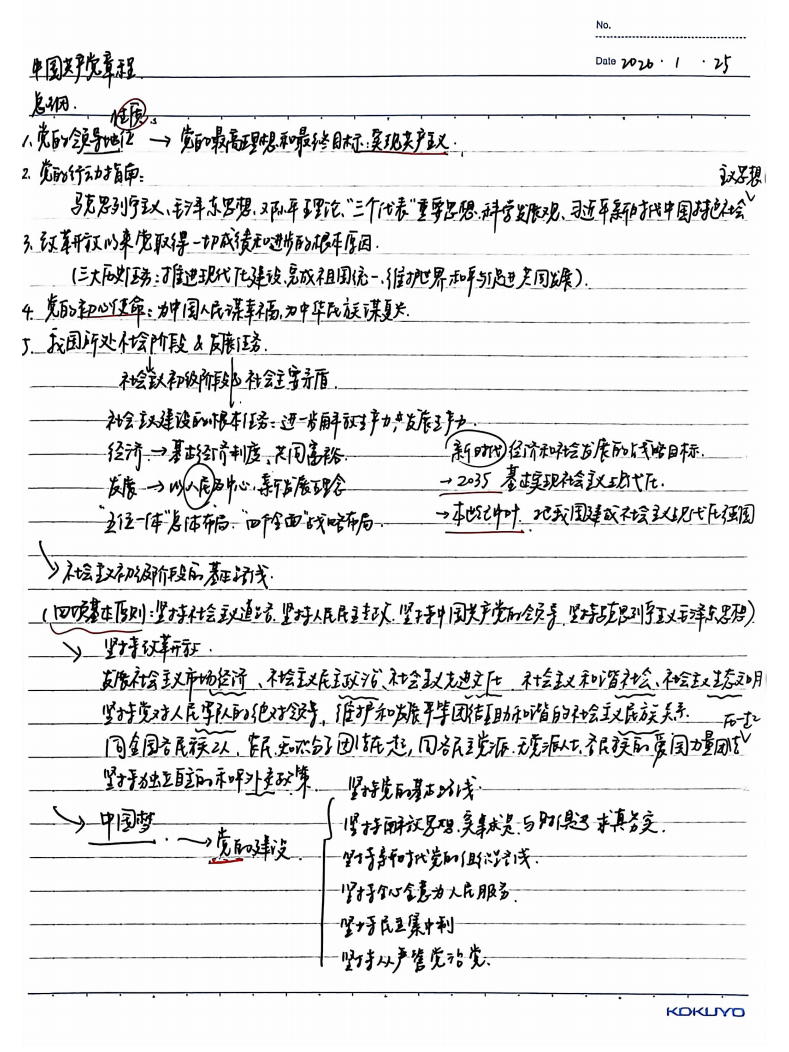 No.
Date 2026 · 1 · 25
中国共产党章程
总纲.
性质.
1. 党的领导地位 → 党的最高理想和最终目标:实现共产主义.
2. 党的行动指南:
主义思想
马克思列宁主义、毛泽东思想、邓小平理论、"三个代表"重要思想、科学发展观、习近平新时代中国特色社会
3. 改革开放以来党取得一切成绩和进步的根本原因.
(三大历史任务:推进现代化建设、完成祖国统一、维护世界和平与促进共同发展).
4. 党的初心使命:为中国人民谋幸福,为中华民族谋复兴.
5. 我国所处社会阶段 & 发展任务.
社会主义初级阶段 社会主要矛盾.
社会主义建设的根本任务:进一步解放生产力,发展生产力.
经济 → 基本经济制度、共同富裕. 新时代经济和社会发展的战略目标.
发展 → 以人民为中心,新发展理念 → 2035 基本实现社会主义现代化.
"五位一体"总体布局.“四个全面”战略布局. → 本世纪中叶. 把我国建成社会主义现代化强国
社会主义初级阶段的基本路线.
(四项基本原则:坚持社会主义道路.坚持人民民主专政.坚持中国共产党的领导.坚持马克思列宁主义毛泽东思想)
坚持改革开放.
发展社会主义市场经济、社会主义民主政治、社会主义先进文化 社会主义和谐社会、社会主义生态文明
坚持党对人民军队的绝对领导, 维护和发展平等团结互助和谐的社会主义民族关系.
在一起
同全国各民族工人, 农民,知识分子团结在一起,同各民主党派.无党派人士.各民族的爱国力量团结
坚持独立自主的和平外交政策 坚持党的基本路线.
→ 中国梦. → 党的建设. 坚持解放思想.实事求是.与时俱进 求真务实.
坚持新时代党的组织路线.
坚持全心全意为人民服务.
坚持民主集中制
坚持从严管党治党.
KOKUYO